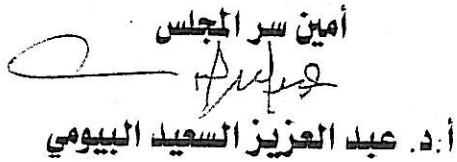 أمين سر المجلس
أ.د. عبد العزيز السعيد البيومي